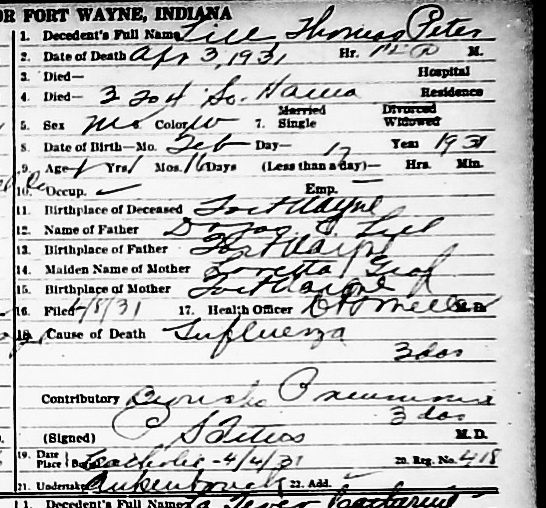 OR FORT WAYNE, INDIANA
1. Decedent's Full Name Lill Thomas Peter
2. Date of Death Apr 3, 1931 Hr. M.
3. Died— Hospital
4. Died— 3204 So. Hanna Residence
Married Divorced
5. Sex M 6. Color W 7. Single Widowed
8. Date of Birth—Mo. Feb Day— 17 Year 1931
9. Age— Yrs. 1 Mos. 16 Days (Less than a day)— Hrs. Min.
10. Occup. Emp.
11. Birthplace of Deceased Fort Wayne
12. Name of Father Lill
13. Birthplace of Father Fort Wayne
14. Maiden Name of Mother Loretta Graf
15. Birthplace of Mother Fort Wayne
16. Filed 4/8/31 17. Health Officer Miller M.D.
18. Cause of Death Influenza
3 das
Contributory Pneumonia
3 das
(Signed) M.D.
19. Date Place Catholic - 4/4/31 20. Reg. No. 418
21. Undertaker Ankenbruck 22. Add.
1. Decedent's Full Name Katharine